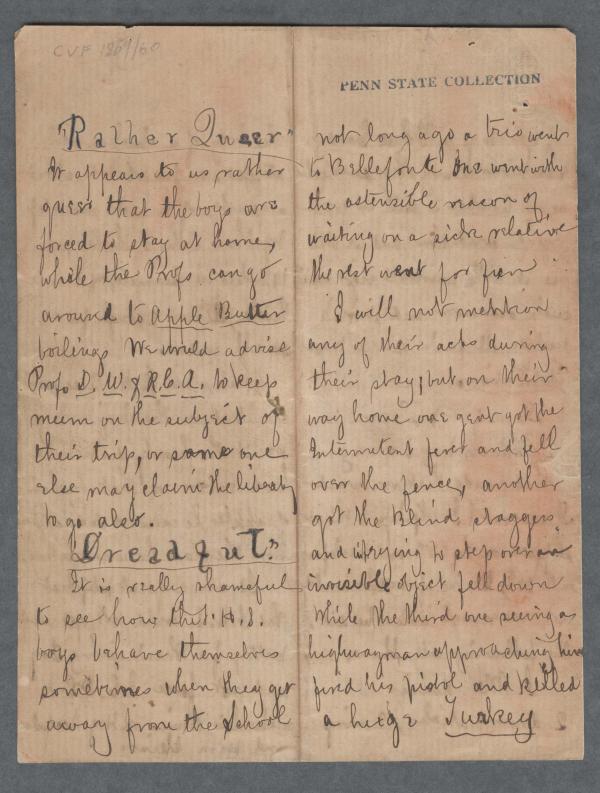 CVF 1859/60
PENN STATE COLLECTION
"Rather Queer"
It appears to us rather
queer that the boys are
forced to stay at home,
while the Profs. can go
around to Apple Butter
boilings We would advise
Profs D. W. & R.C.A. to keep
mum on the subject of
their trip, or some one
else may claim the liberty
to go also.
"Dreadful."
It is really shameful
to see how the F. H. S.
boys behave themselves
sometimes when they get
away from the School
not long ago a trio went
to Bellefonte One went with
the astensible reason of
waiting on a sick relative
the rest went for fun
I will not mention
any of their acts during
their stay, but on their
way home one gent got the
Intermitent fever and fell
over the fence, another
got the Blind staggers
and in trying to step over an
invisible object fell down
While the third one seeing a
highwayman approaching him
fired his pistol and killed
a huge Turkey